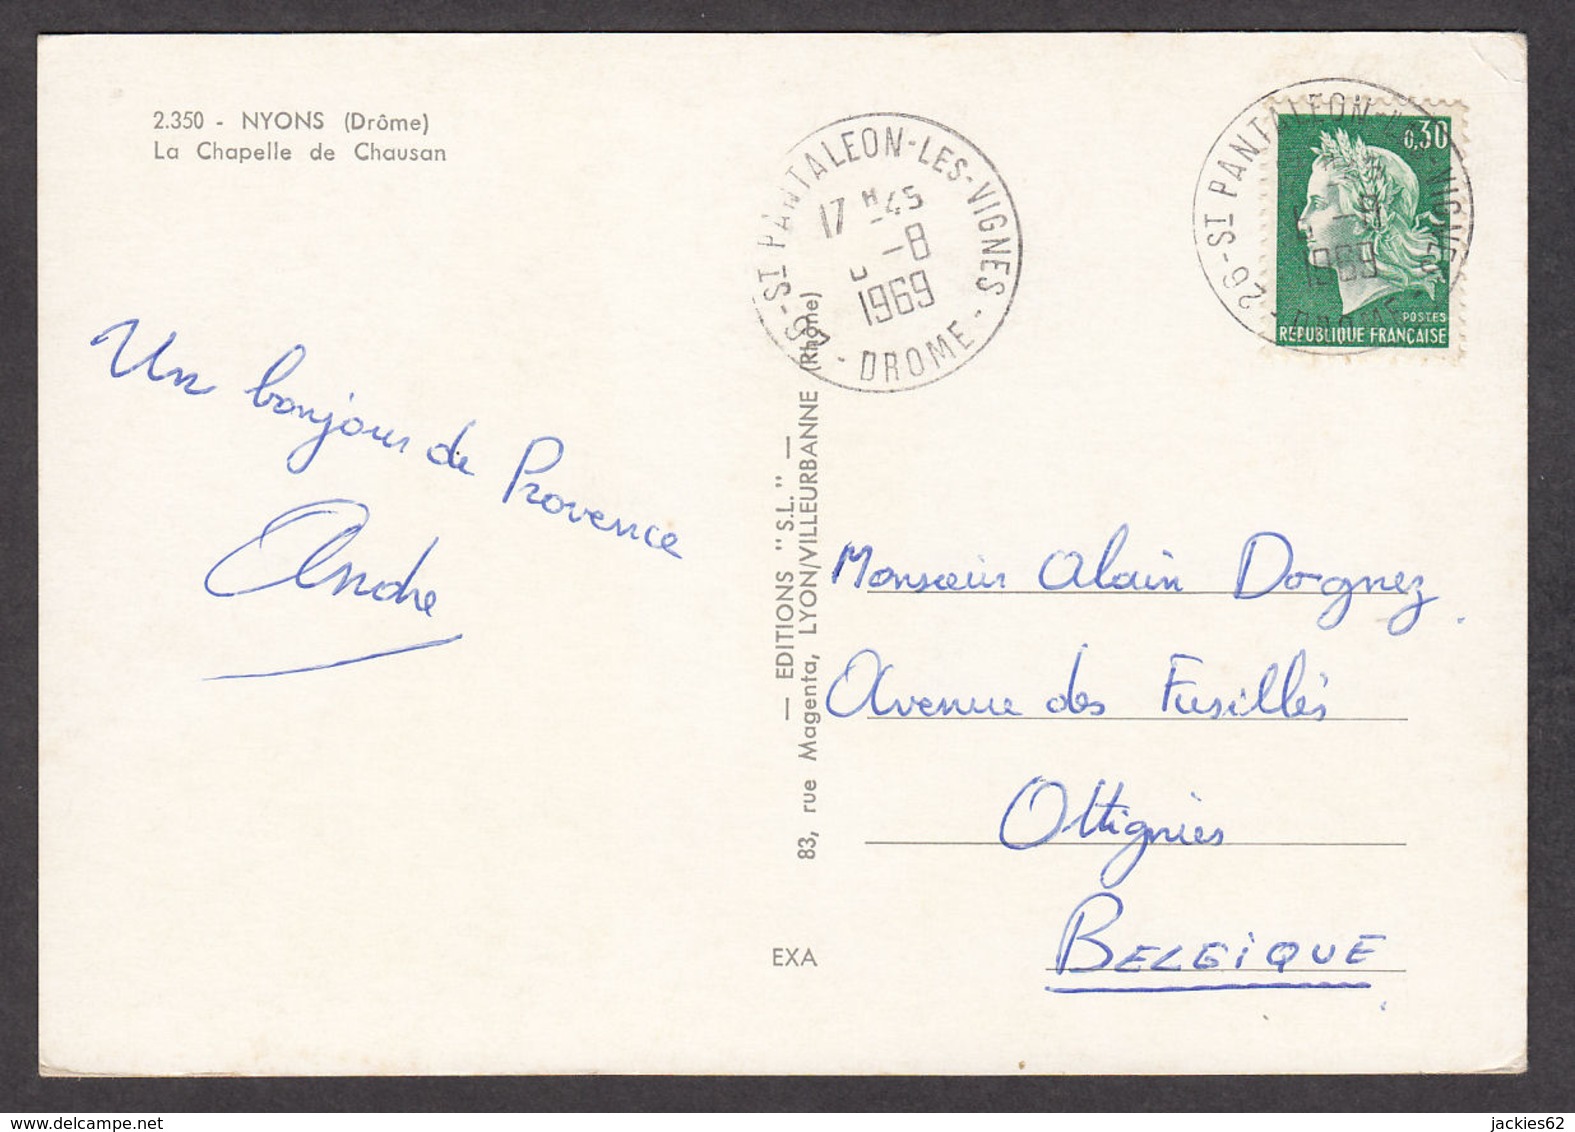 2.350 - NYONS (Drôme)
La Chapelle de Chausan
Un bonjour de Provence
Andre
— EDITIONS "S.L." —
83, rue Magenta, LYON/VILLEURBANNE (Rhône)
EXA
26-ST PANTALEON-LES-VIGNES - DROME -
17 H45
-8
1969
26-ST PANTALEON-LES-VIGNES
DROME
-8
1969
0,30
POSTES
REPUBLIQUE FRANÇAISE
Monsieur Alain Dognez
Avenue des Fusillés
Ottignies
BELGIQUE
jackies62